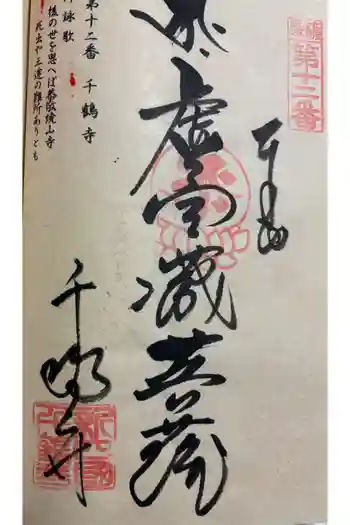 第十二番
奉納
虚空蔵菩薩
千鶴寺
第十二番 千鶴寺
御詠歌
後の世を思へば恭敬焼山寺
死出や三途の難所ありとも